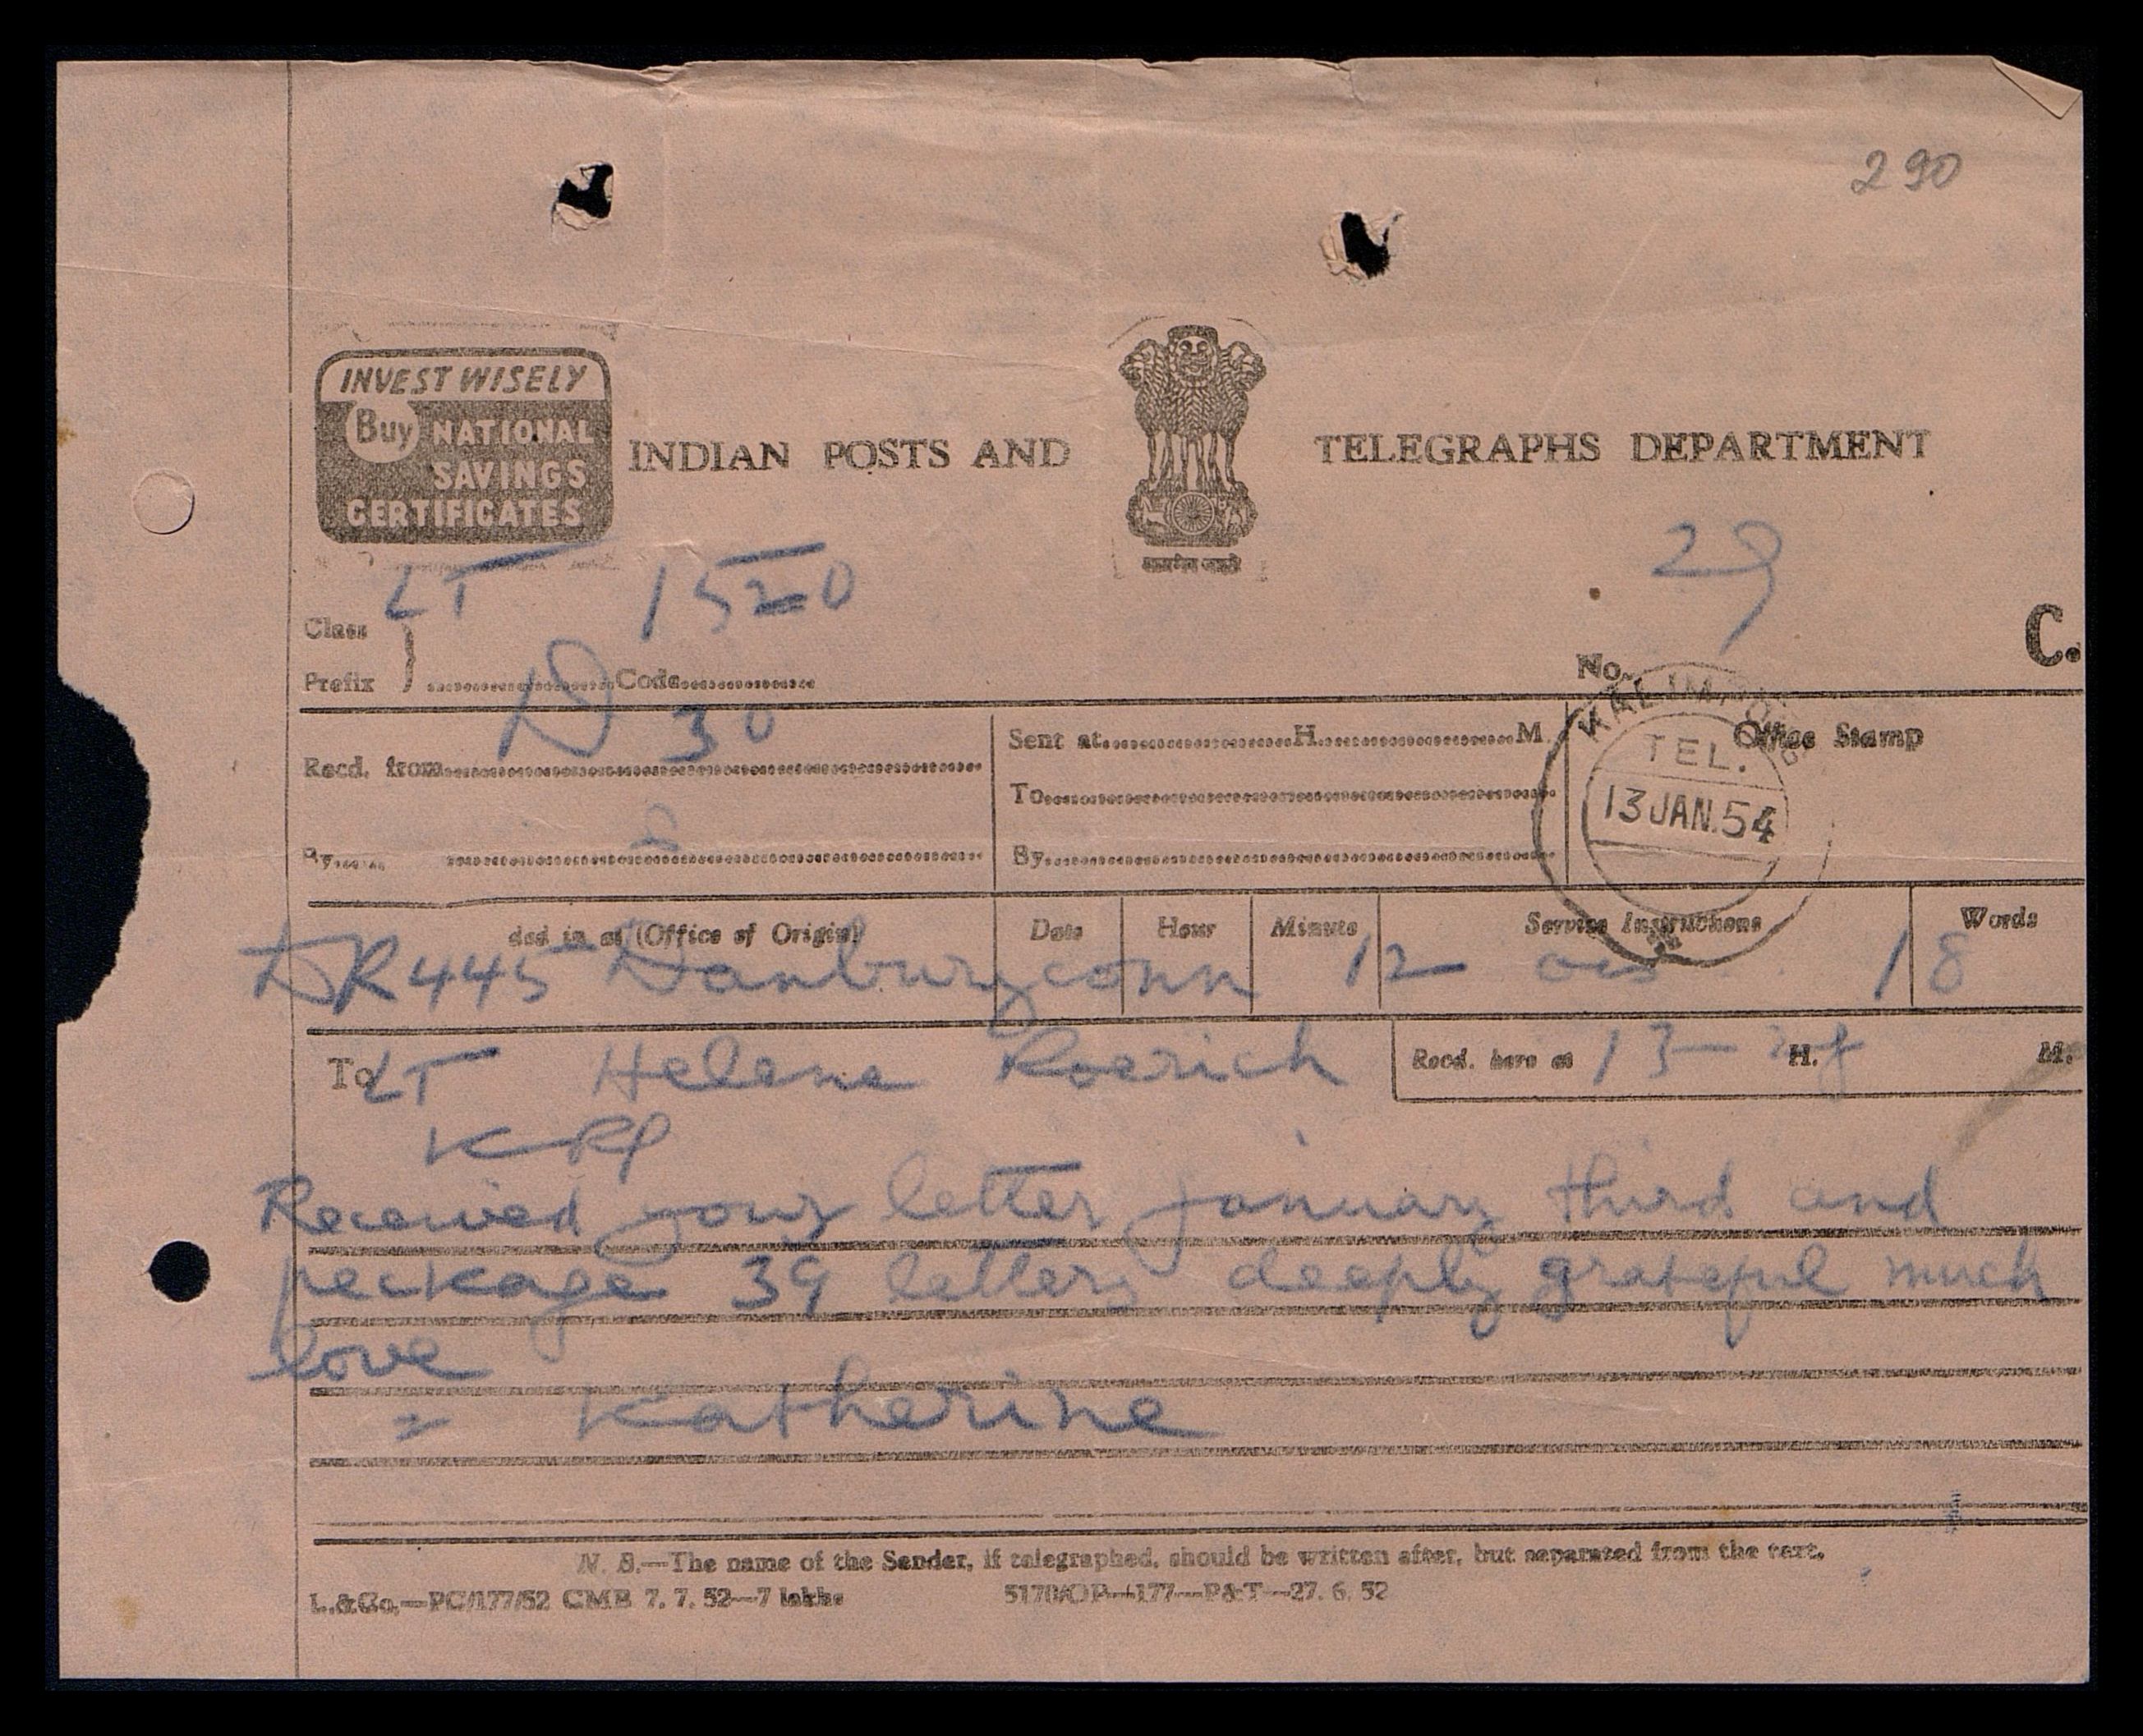 290
INVEST WISELY
Buy NATIONAL
SAVINGS
CERTIFICATES
INDIAN POSTS AND TELEGRAPHS DEPARTMENT
LT 1520
29
Class
Prefix Code
No.
C.
30
Recd. from
Sent at H. M.
Office Stamp
KALIMPONG
TEL.
13 JAN. 54
To
By
By
ded in at (Office of Origin) Date Hour Minute Service Instructions Words
DR445 Danburyconn 12 18
To LT Helene Roerich
Recd. here at 13 H. M.
KPG
Received your letter January third and
package 39 letters deeply grateful much
love
= Katherine
N. B.—The name of the Sender, if telegraphed, should be written after, but separated from the text.
L.&Co.—PC/177/52 CMB 7. 7. 52—7 lakhs 5170/OP—177—P&T—27. 6. 52